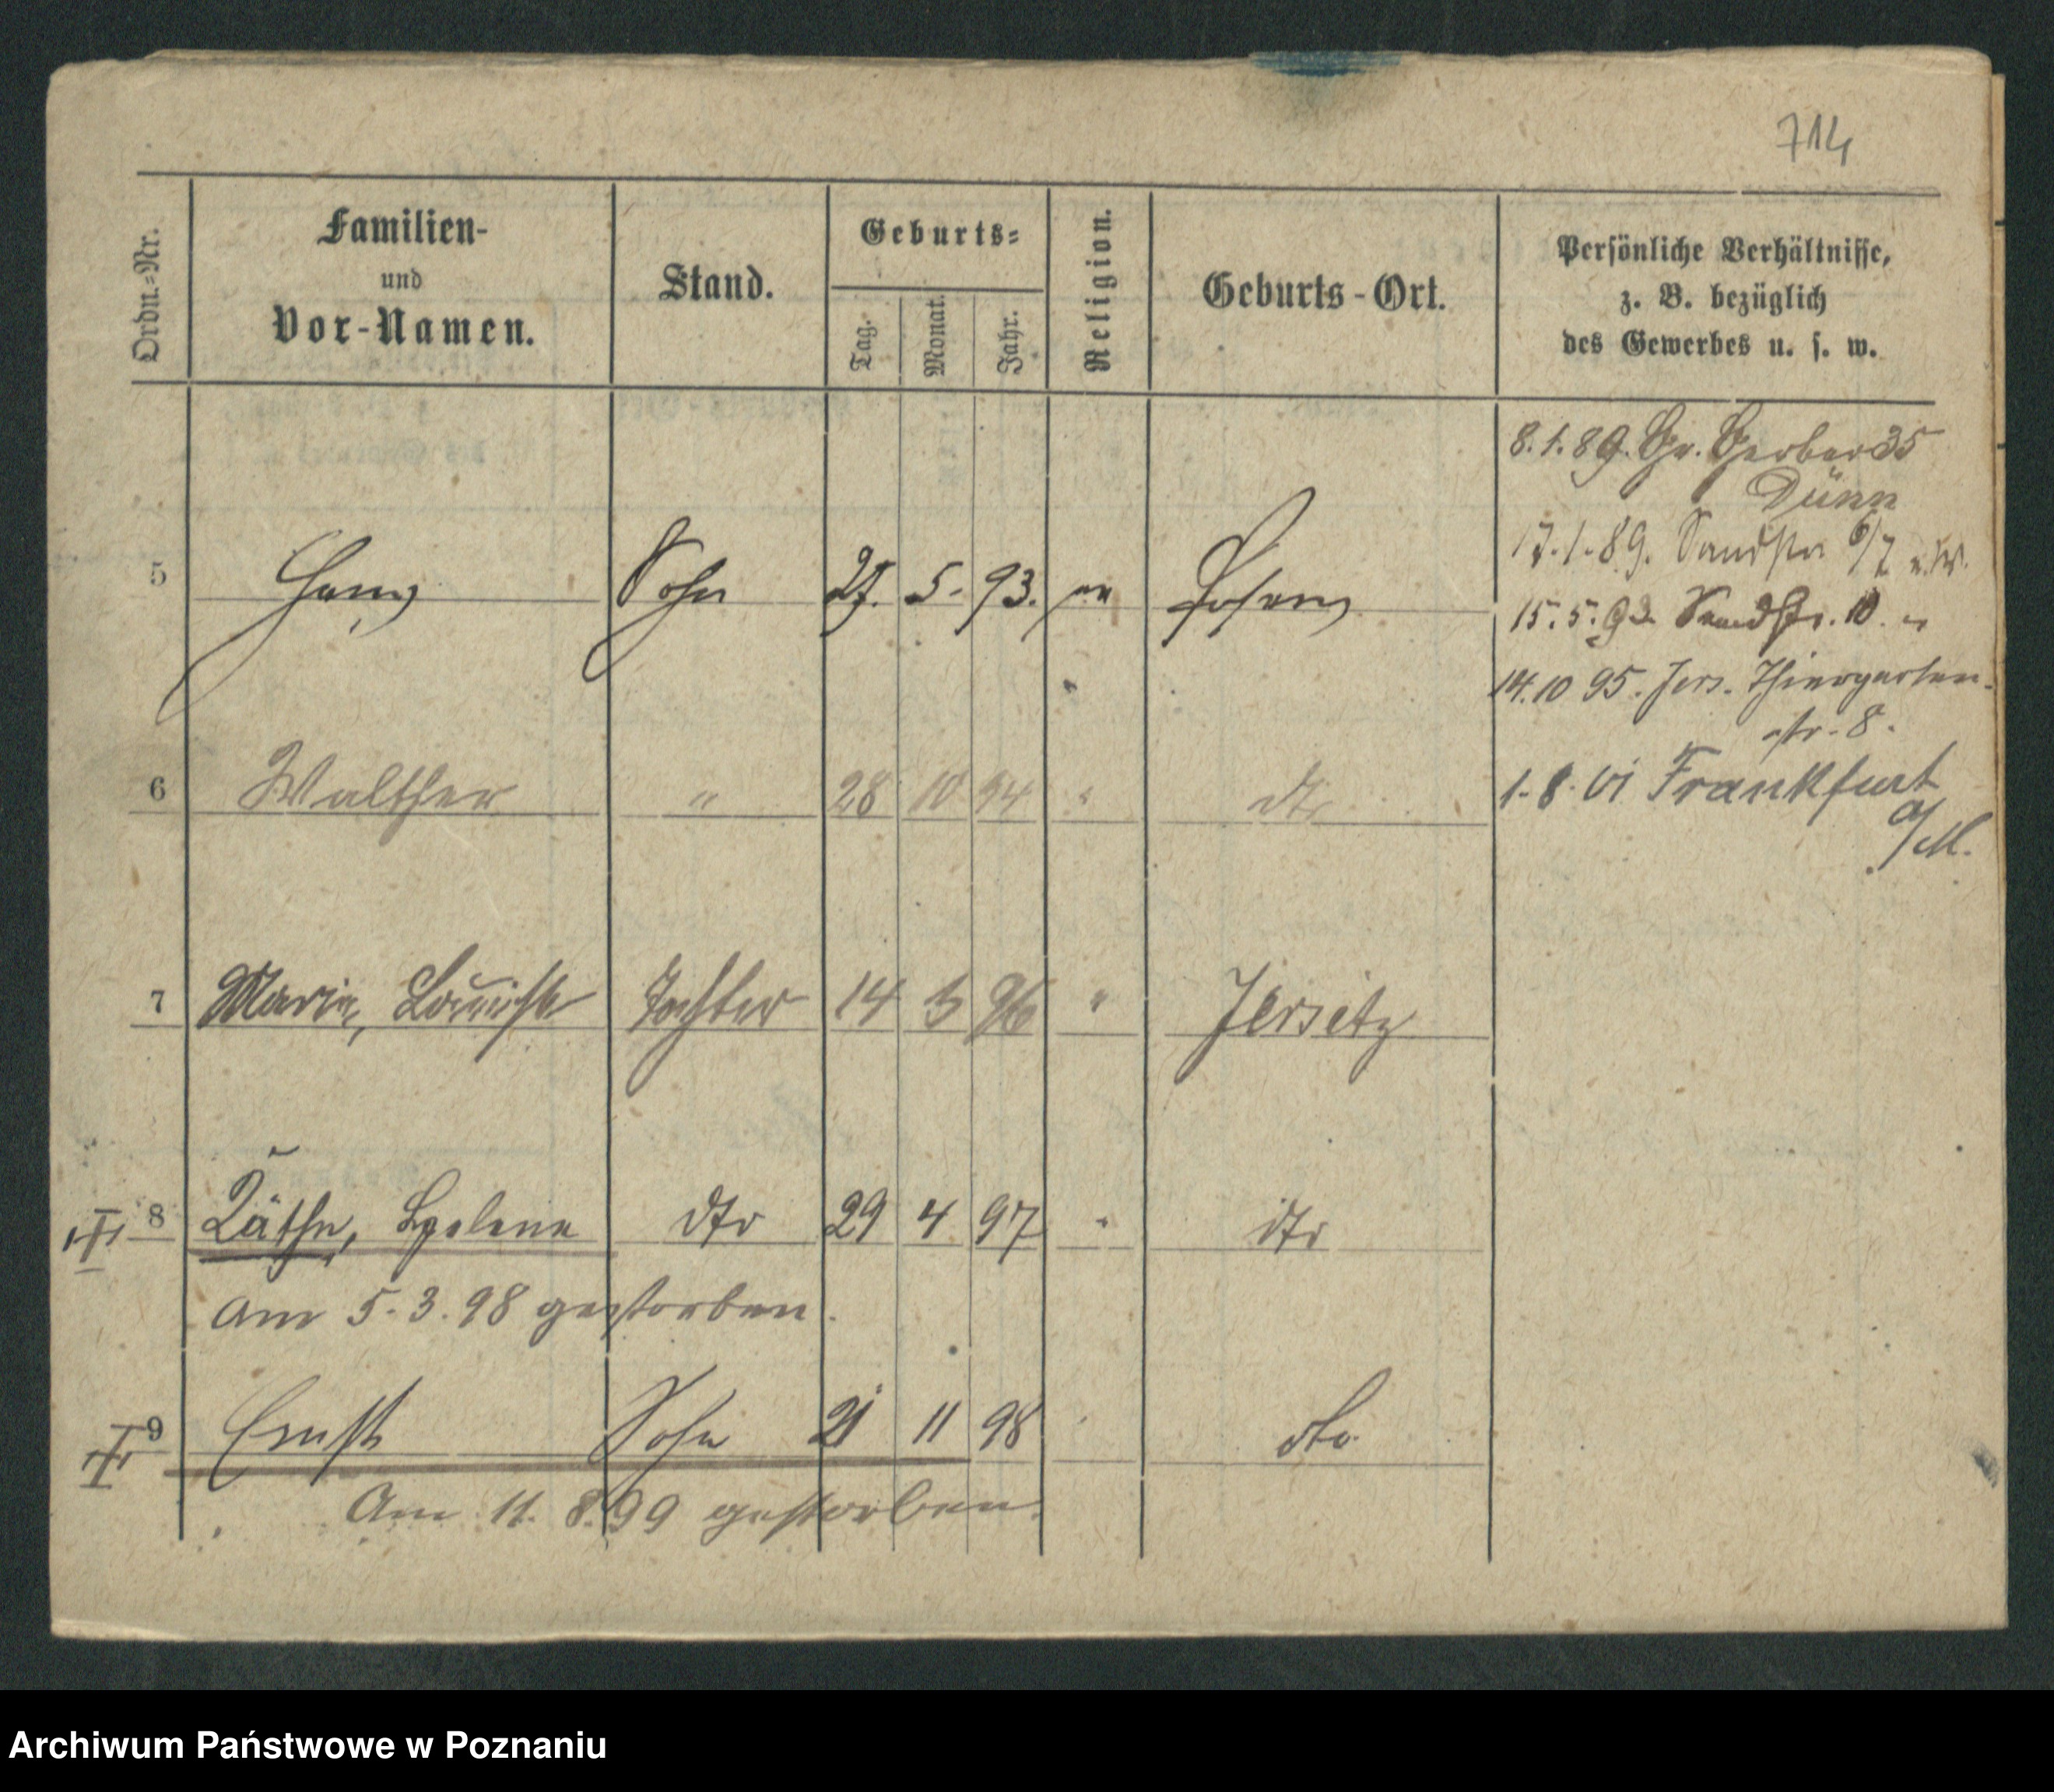 714
Ordn.-Nr.
Familien-
und
Vor-Namen.
Stand.
Geburts-
Tag.
Monat.
Jahr.
Religion.
Geburts-Ort.
Persönliche Verhältnisse,
z. B. bezüglich
des Gewerbes u. s. w.
8.1.89. Gr. Gerber 35
Dünn
17.1.89. Sandstr 6/7
15.5.93 Sandstr. 10.
14.10 95. Jers. Thiergarten-
str. 8.
1.8.01 Frankfurt
a/M.
5 Hans Sohn 27. 5. 93. ev Posen
6 Walther " 28 10 94 " dto
7 Marie, Louise Tochter 14 3 96 " Jersitz
8 Käthe, Helene dto 29 4 97 " dto
am 5.3.98 gestorben.
9 Ernst Sohn 21 11 98 dto
Am 11.8.99 gestorben.
Archiwum Państwowe w Poznaniu